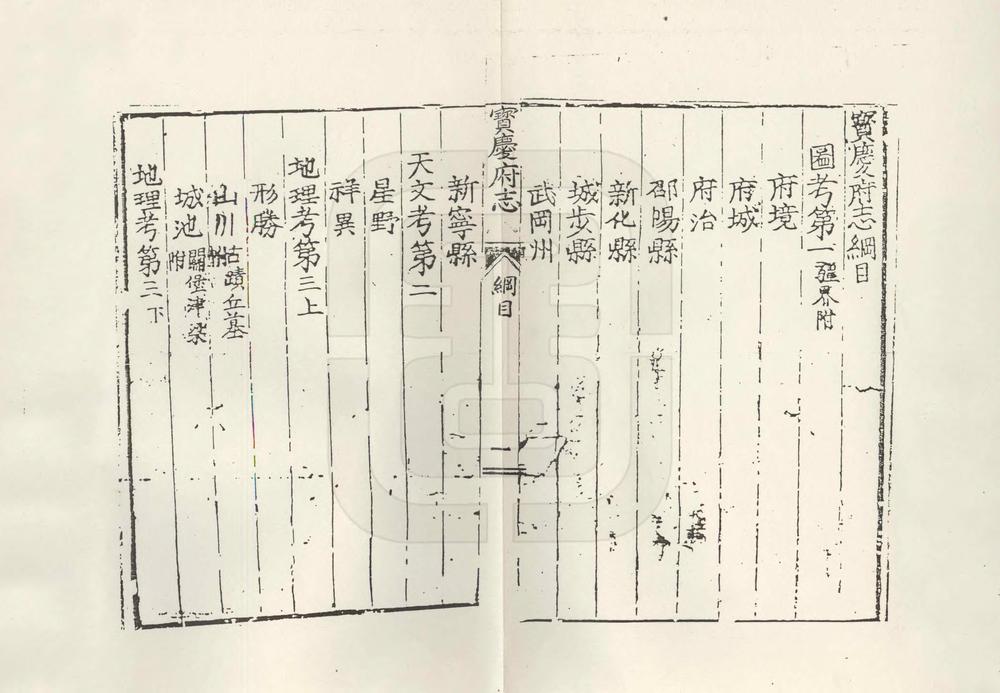 寳慶府志綱目
圖考第一 疆界附
府境
府城
府治
邵陽縣
新化縣
城步縣
武岡州
寳慶府志 綱目 一
新寧縣
天文考第二
星野
祥異
地理考第三上
形勝
山川 古蹟丘墓附
城池 關堡津梁附
地理考第三下